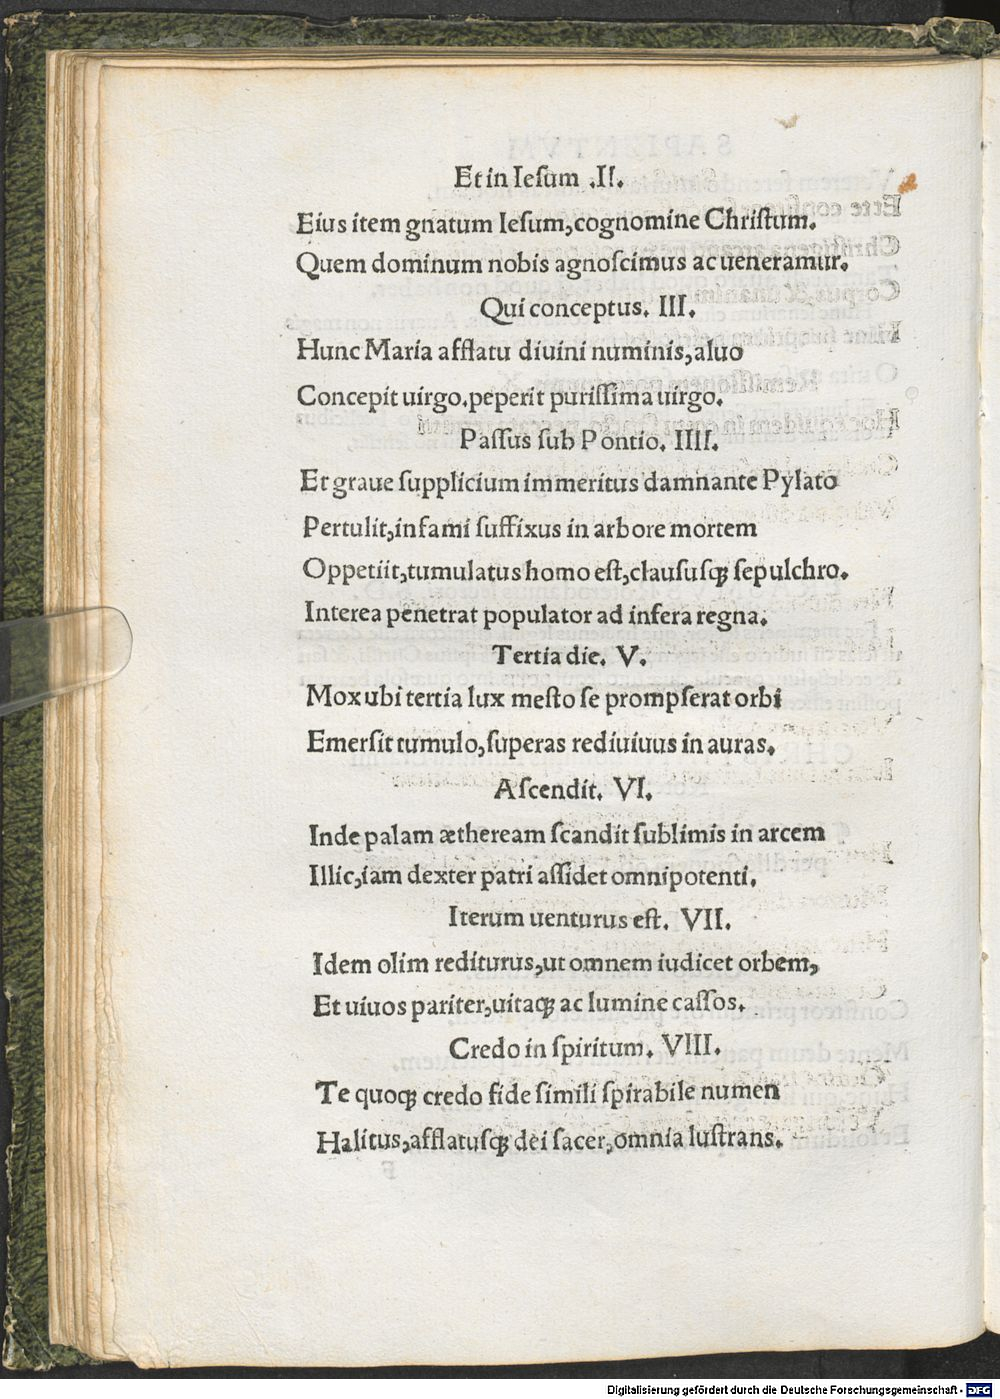 Et in Ieſum .II.
Eius item gnatum Ieſum, cognomine Chriſtum.
Quem dominum nobis agnoſcimus ac ueneramur.
Qui conceptus. III.
Hunc Maria afflatu diuini numinis, aluo
Concepit uirgo. peperit puriſſima uirgo.
Paſſus ſub Pontio. IIII.
Et graue ſupplicium immeritus damnante Pylato
Pertulit, infami ſuffixus in arbore mortem
Oppetiit, tumulatus homo eſt, clauſuſqꝫ ſepulchro.
Interea penetrat populator ad infera regna.
Tertia die. V.
Mox ubi tertia lux meſto ſe prompſerat orbi
Emerſit tumulo, ſuperas rediuiuus in auras.
Aſcendit. VI.
Inde palam ætheream ſcandit ſublimis in arcem
Illic, iam dexter patri aſſidet omnipotenti.
Iterum uenturus eſt. VII.
Idem olim rediturus, ut omnem iudicet orbem,
Et uiuos pariter, uitaqꝫ ac lumine caſſos.
Credo in ſpiritum. VIII.
Te quoqꝫ credo fide simili ſpirabile numen
Halitus, afflatuſqꝫ dei ſacer, omnia luſtrans.
Digitalisierung gefördert durch die Deutsche Forschungsgemeinschaft - DFG